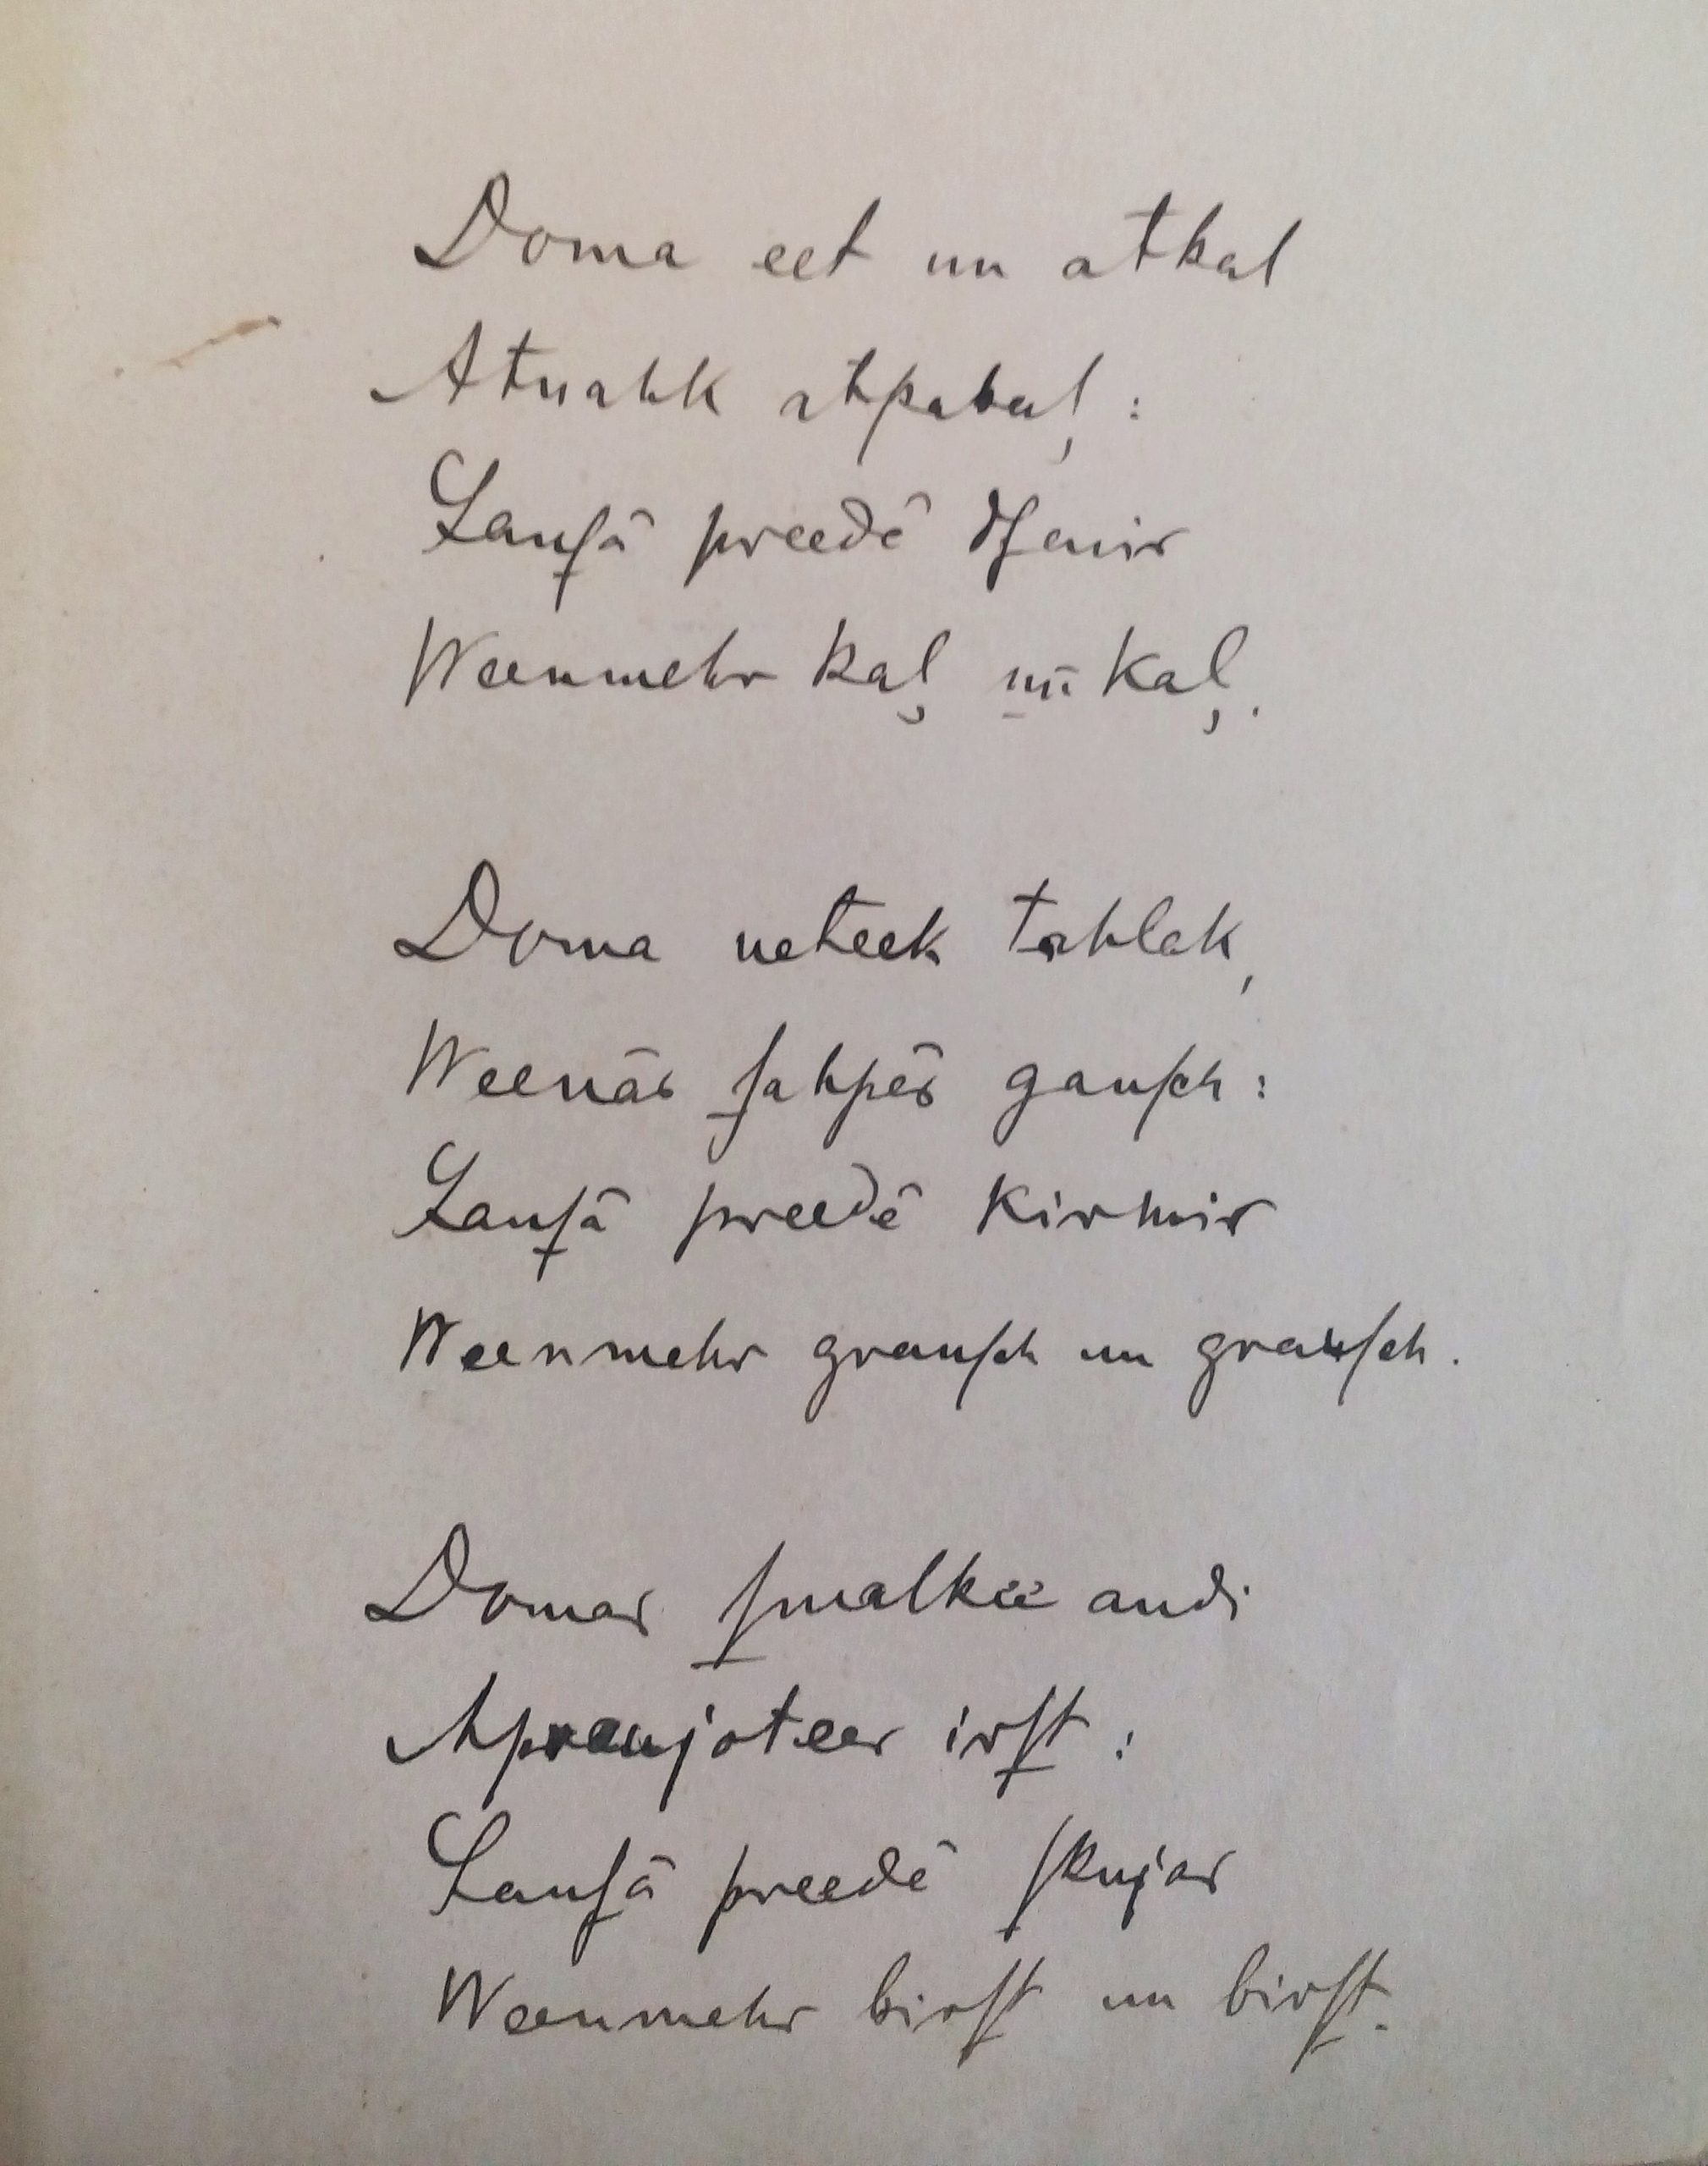 Doma eet un atkal
Atnahk atpakaļ:
Sausâ preedê dſenis
Weenmehr kaļ un kaļ.
Doma neteek tahlak,
Weenâs ſahpês gauſch:
Sausâ preedê kirmis
Weenmehr grauſch un grauſch.
Domas ſmalkee andi
Apraujotees irſt:
Sausâ preedê ſkujas
Weenmehr birſt un birſt.